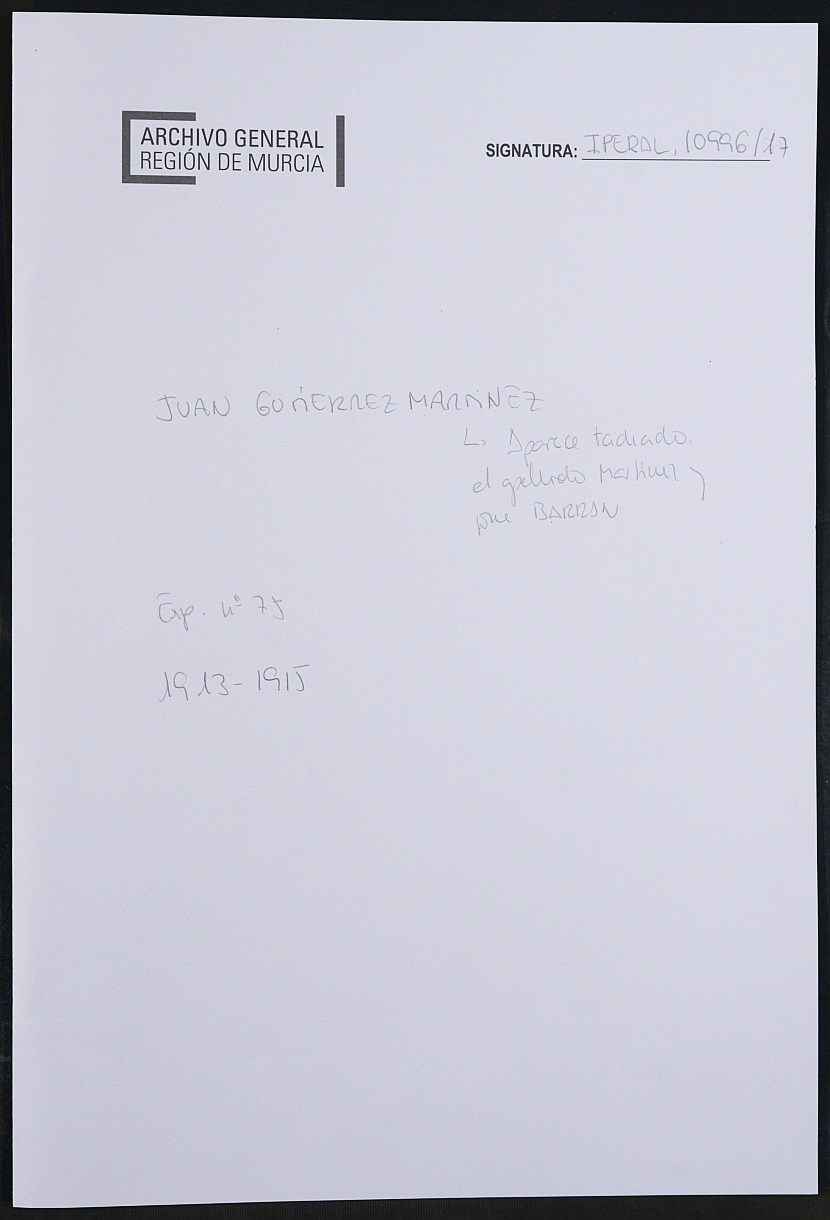 ARCHIVO GENERAL
REGIÓN DE MURCIA
SIGNATURA: IPERAL, 10996/17
JUAN GUTIERREZ MARTINEZ
↳ Aparece tachado
el apellido Martínez y
pone BARRAN
Exp. nº 75
1913-1915